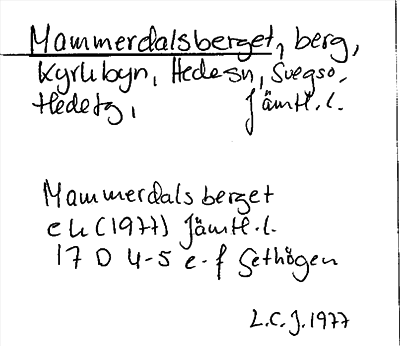 Mammerdalsberget, berg,
Kyrkbyn, Hede sn, Svegs o.
Hede tg, Jämtl. l.
Mammerdalsberget
ek (1977) Jämtl. l.
17 D 4-5 e-f Gethögen
L.C.J. 1977